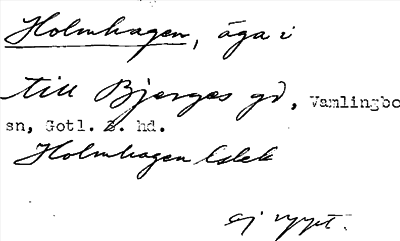 Holmhagen, äga i
till Bjerges gd, Vamlingbo
sn, Gotl. S. hd.
Holmhagen Eslek
ej rypt.